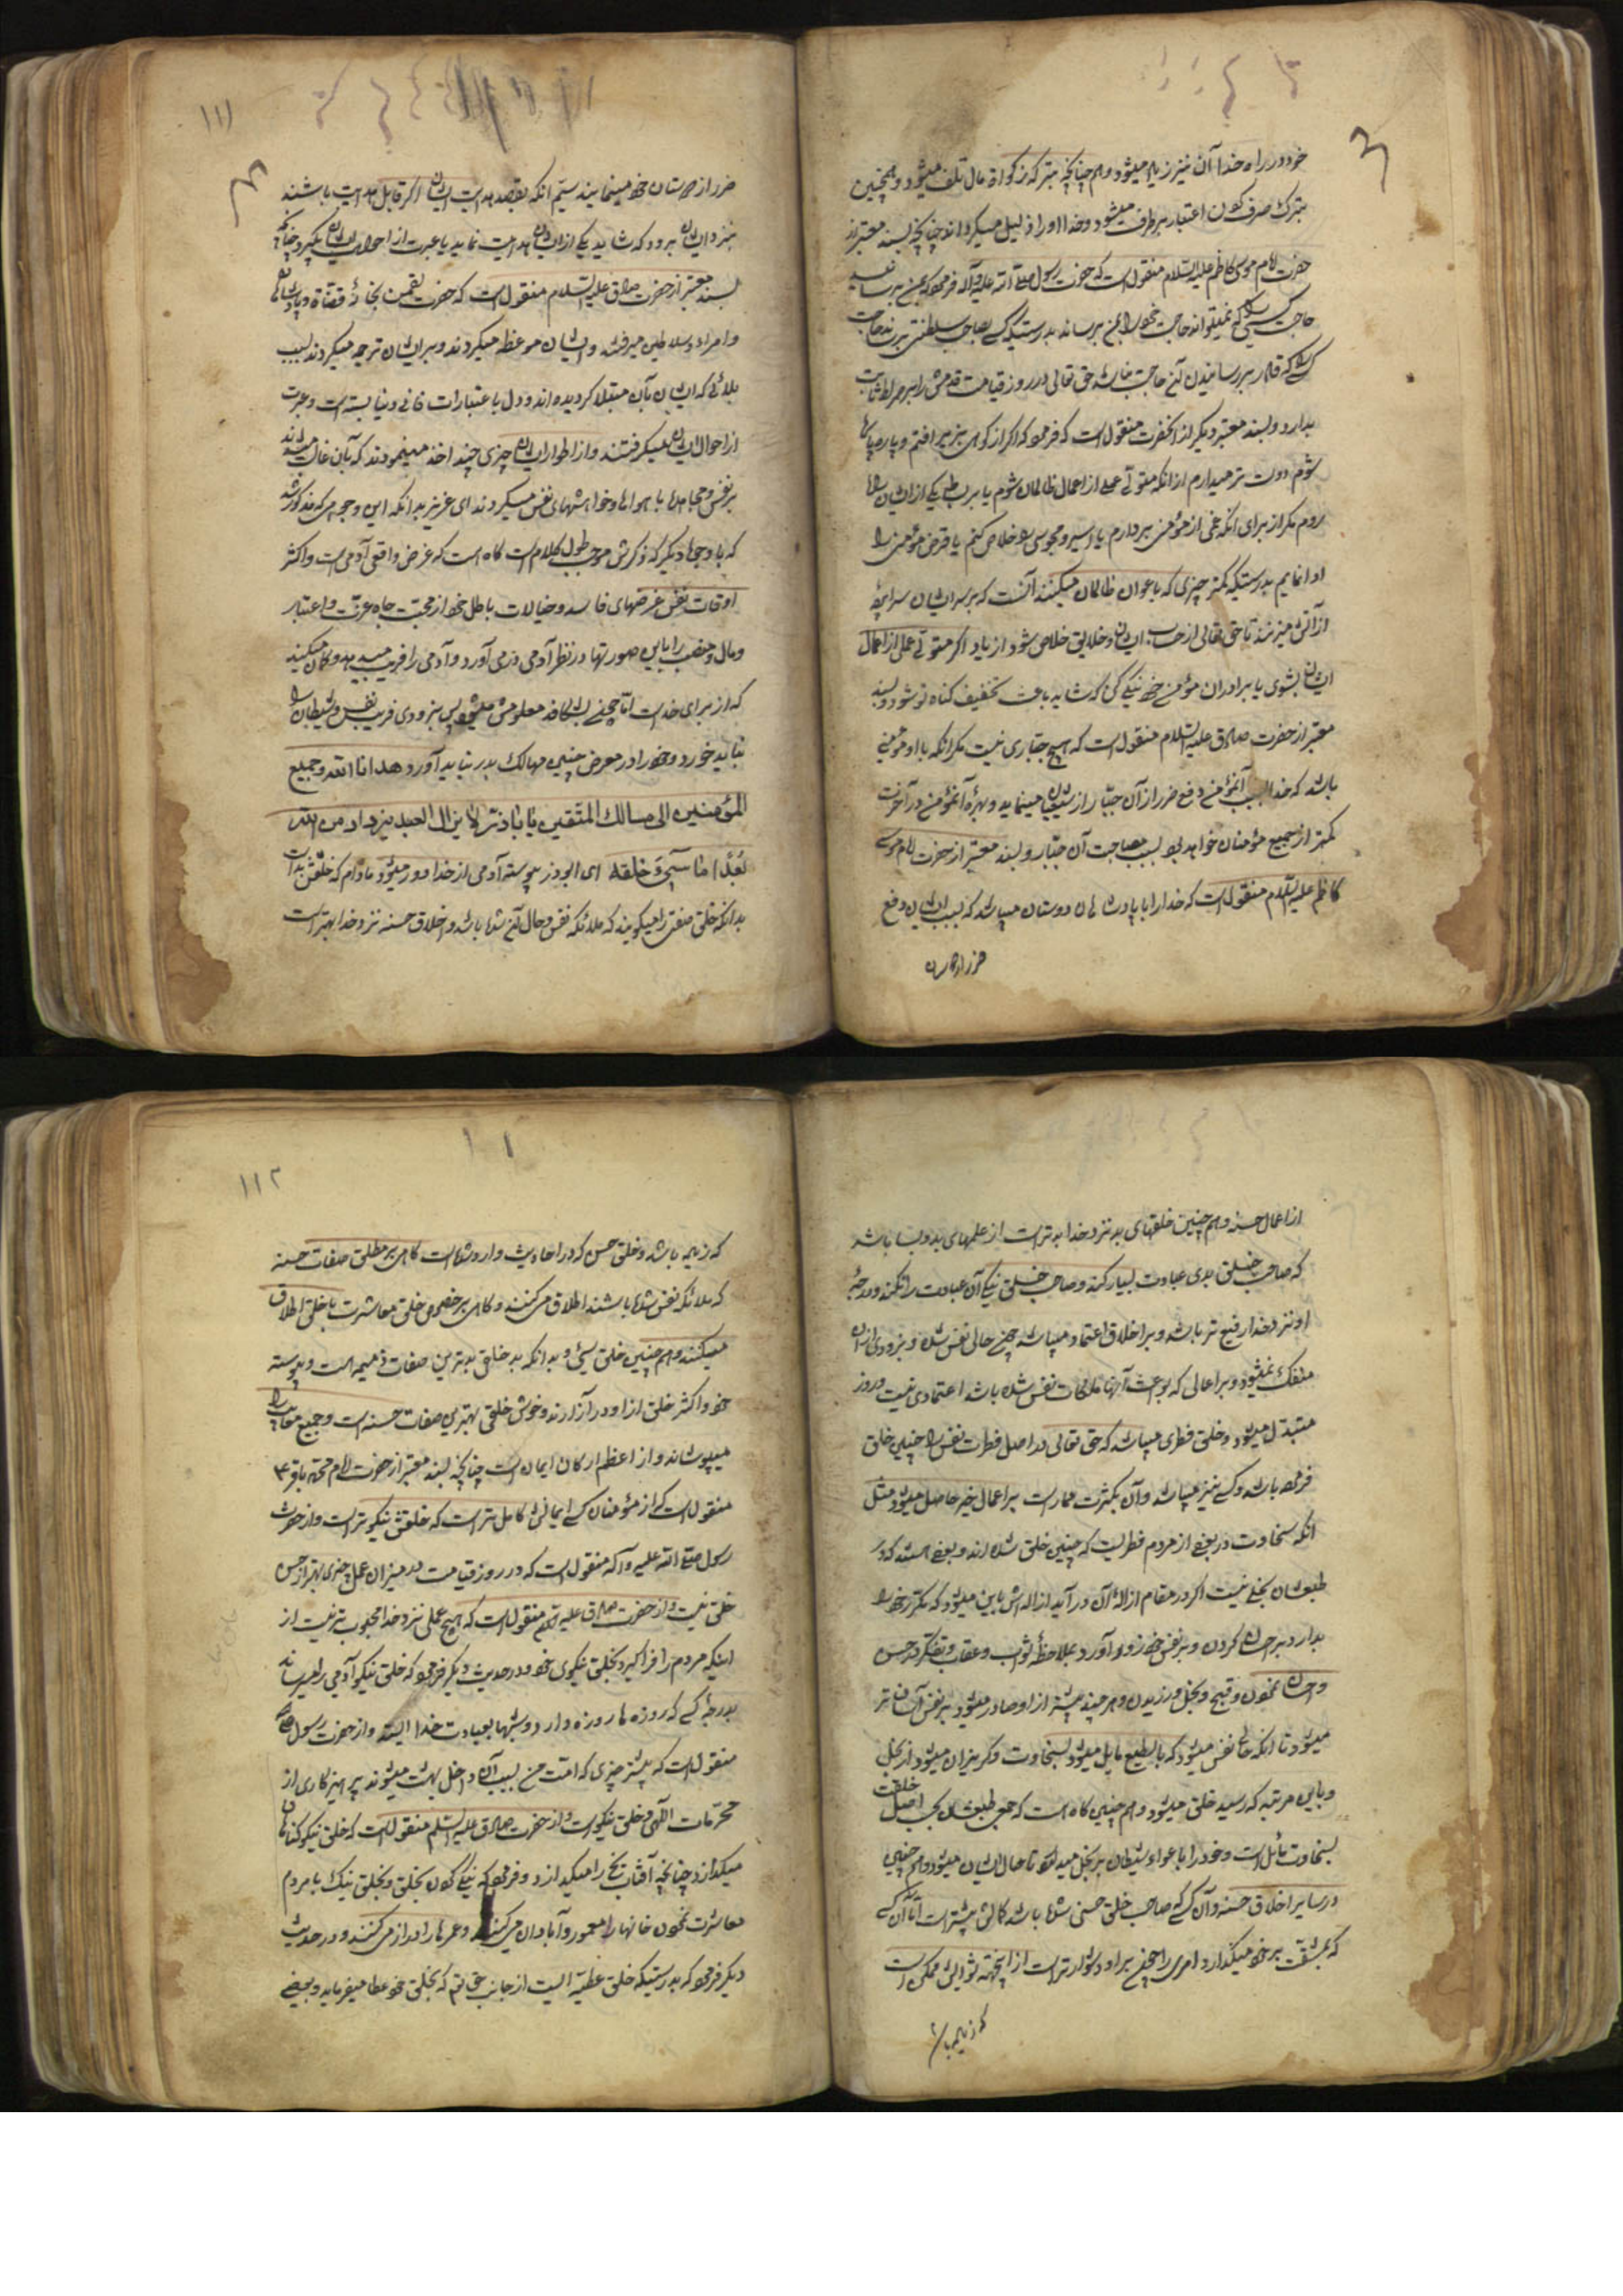 خود در راه خدا آن نیز زیاد میشود و هم چنانچه بترک زکوة مال تلف میشود و همچنین
بترک صرف کردن اعتبار برطرف میشود و خدا او را ذلیل میگرداند چنانچه بسند معتبر از
حضرت امام موسی کاظم علیه السلام منقول است که حضرت رسول صلی الله علیه وآله فرمود که بمن برسانید
حاجت کسی را که نمیتواند حاجت خود را بمن برساند بدرستیکه کسی بصاحب سلطنتی برساند حاجت
کسی را که قادر بر رسانیدن آن حاجت نباشد حق تعالی در روز قیامت قدمش را بر صراط ثابت
بدارد و بسند معتبر دیگر از آنحضرت منقول است که فرمود که اگر از کوهی بزیر افتم و پاره پاره
شوم دوست تر میدارم از آنکه متولی عملی از اعمال ظالمان شوم یا بر بساط یکی از ایشان راه
روم مگر از برای آنکه غمی از مؤمنی بردارم یا اسیر و محبوسی را خلاص کنم یا قرض مؤمنی را
ادا نمایم بدرستیکه کمتر چیزی که باعوان ظالمان میکنند آنست که بر سر ایشان سراپرده
از آتش میزنند تا حق تعالی از حساب ایشان و خلایق خلاص شود ای زیاد اگر متولی عملی از اعمال
ایشان بشوی با برادران مؤمن خود نیکی کن که شاید باعث تخفیف گناه تو شود و بسند
معتبر از حضرت صادق علیه السلام منقول است که هیچ جباری نیست مگر آنکه با او مؤمنی
باشد که خدا بسبب آنمؤمن دفع ضرر از آن جبار از شیعیان مینماید و بهرهٔ آنمؤمن در آخرت
کمتر از جمیع مؤمنان خواهد بود بسبب مصاحبت آن جبار و بسند معتبر از حضرت امام موسی
کاظم علیه السلام منقول است که خدا را با پادشاهان دوستان میباشد که بسبب ایشان دفع
ضرر از دوستان
۱۱۱
ضرر از دوستان خود مینماید سیم آنکه بقصد هدایت ایشان اگر قابل هدایت باشند
بنزد ایشان برود که شاید یکی از ایشان هدایت نماید یا عبرت از احوال ایشان بگیرد چنانچه
بسند معتبر از حضرت صادق علیه السلام منقول است که حضرت لقمن بخانهٔ قضاة و پادشاهان
و امراء و سلاطین میرفتند و ایشان موعظه میکردند و بر ایشان ترحم میکردند بسبب
بلائی که ایشان بآن مبتلا گردیده اند و دل باعتبارات فانی دنیا بسته است و عبرت
از احوال ایشان میگرفتند و از اطوار ایشان چیزی چند اخذ مینمودند که بآن غالب میتواند شد
بر نفس و مجاهده با هواها و خواهشهای نفس میکردند ای عزیز بدانکه این وجه هرکه مذکور شد
که با وجهای دیگر که ذکرش موجب طول کلام است گاه است که غرض واقعی آدمی است و اکثر
اوقات نفس غرضهای فاسد و خیالات باطل خود از محبت جاه و عزت و اعتبار
و مال و منصب را باین صورتها در نظر آدمی درمی آورد و آدمی را فریب میدهد و گمان میکند
که از برای خداست اما چون بشکافد معلومش میشود پس بزودی فریب نفس و شیطان را
نباید خورد و خود را در معرض چنین مهالک بدر نباید آورد هدانا الله وجمیع
المؤمنین الی مسالک المتقین یا باذر لا یزال العبد یزداد من الله
بُعداً ما سیئ خلقه ای ابوذر پیوسته آدمی از خدا دور میشود مادام که خلقش بد است
بدانکه خلق صفتی را میگویند که ملائکه نفس و حال آن شده باشد و اخلاق حسنه نزد خدا بهتر است
از اعمال حسنه و هم چنین خلقهای بد نزد خدا بدتر است از عملهای بد و بسا باشد
که صاحب خلق بدی عبادت بسیار کند و صاحب خلق نیکی آن عبادت را نکند و درجهٔ
او نزد خدا رفیع تر باشد و بر اخلاق اعتماد میباشد چون حالی نفس شده و بزودی از آن
منفک نمیشود و بر اعمالی که بوعث آنها ملکات نفس نشده باشد اعتمادی نیست و زود
متبدل میشود و خلق فطری میباشد که حق تعالی در اصل فطرت نفس را چنین خلق
فرموده باشد و کسبی نیز میباشد و آن بکثرت ممارست بر اعمال خیر حاصل میشود مثل
آنکه سخاوت در بعضی از مردم فطریست که چنین خلق شده اند و بعضی هستند که در
طبعشان بخلی نیست اگر در مقام ازالهٔ آن در آید ازاله اش باین میشود که مکرر خود را
بدارد بر احسان کردن و بر نفس خود زور آورد بملاحظهٔ ثواب و عقاب و تفکر در حسن
احسان نمودن و قبح و بخل ورزیدن و هر چند بیشتر از او صادر میشود بر نفس آسان تر
میشود تا آنکه حالی نفس میشود که بالطبع مایل میشود بسخاوت و گریزان میشود از بخل
و باین مرتبه که رسید خلق میشود و هم چنین گاه است که جمعی طبعشان بحسب اصل خلقت
بسخاوت مائل است و خود را باغواء شیطان بر بخل میدارند تا حال ایشان میشود و هم چنین
در سایر اخلاق حسنه و آن کسی که صاحب خلق حسنی شده باشد کمالش بیشتر است اما آن کسی
که بمشقت بر خود میگذارد امری را چون بر او دشوارتر است از این جهت ثوابش ممکن است
که زیاده باشد
۱۱۲
که زیاده باشد و خلق حسن که در احادیث وارد شده است گاهی بر مطلق صفات حسنه
که ملائکه نفس شده باشند اطلاق می کنند و گاهی بر خصوص خلق معاشرت با خلق اطلاق
میکنند و هم چنین خلق سیئ و بدانکه بد خلقی بدترین صفات ذمیمه است و پیوسته
خود و اکثر خلق از او در آزارند و خوش خلقی بهترین صفات حسنه است و جمیع معایب را
میپوشاند و از اعظم ارکان ایمان است چنانچه بسند معتبر از حضرت امام محمد باقر ع
منقول است که از مؤمنان کسی ایمانش کامل تر است که خلقش نیکوتر است و از حضرت
رسول صلی الله علیه وآله منقول است که در روز قیامت در میزان عمل چیزی بهتر از حسن
خلق نیست و از حضرت صادق علیه السلام منقول است که هیچ عملی نزد خدا محبوب تر نیست از
اینکه مردم را فرا گیرد بخلق نیکوی خود و در حدیث دیگر فرمود که خلق نیکو آدمی را میرساند
بدرجهٔ کسی که روزه ها روزه دارد و شبها بعبادت خدا ایستد و از حضرت رسول ص
منقول است که بیشتر چیزی که امت من بسبب آن داخل بهشت میشوند پرهیزکاری از
محرمات الهی و خلق نیکوست و از حضرت صادق علیه السلم منقول است که خلق نیکو گناهان را
میگدازد چنانچه آفتاب یخ را میگدازد و فرمود که نیکی کردن بخلق و بخلق نیک با مردم
معاشرت نمودن خانها را معمور و آبادان می کنند و عمرها را دراز می کنند و در حدیث
دیگر فرمود که بدرستیکه خلق عطیه ایست از جانب حق تع که بخلق خود عطا میفرماید و بعضی